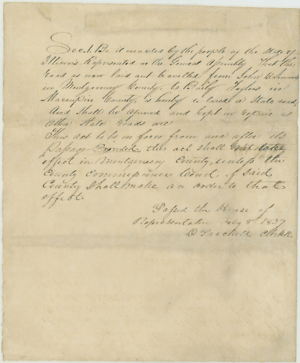 Sec 1 Be it enacted by the people of the State of
Illinois Represented in the General Assembly That the
road as now laid out travelled from John
in Montgomery County to
in Macoupin County is hereby a State road
and Shall be opened and kept in repair as
other State roads are
This act to be in force from and after its
passage Provided this act shall
effect in Montgomery County unless the
County commissioners Court of said
County Shall make an order to that
effect
Passed the House of
Representatives Feby 8th 1837
D Prickett Clerk